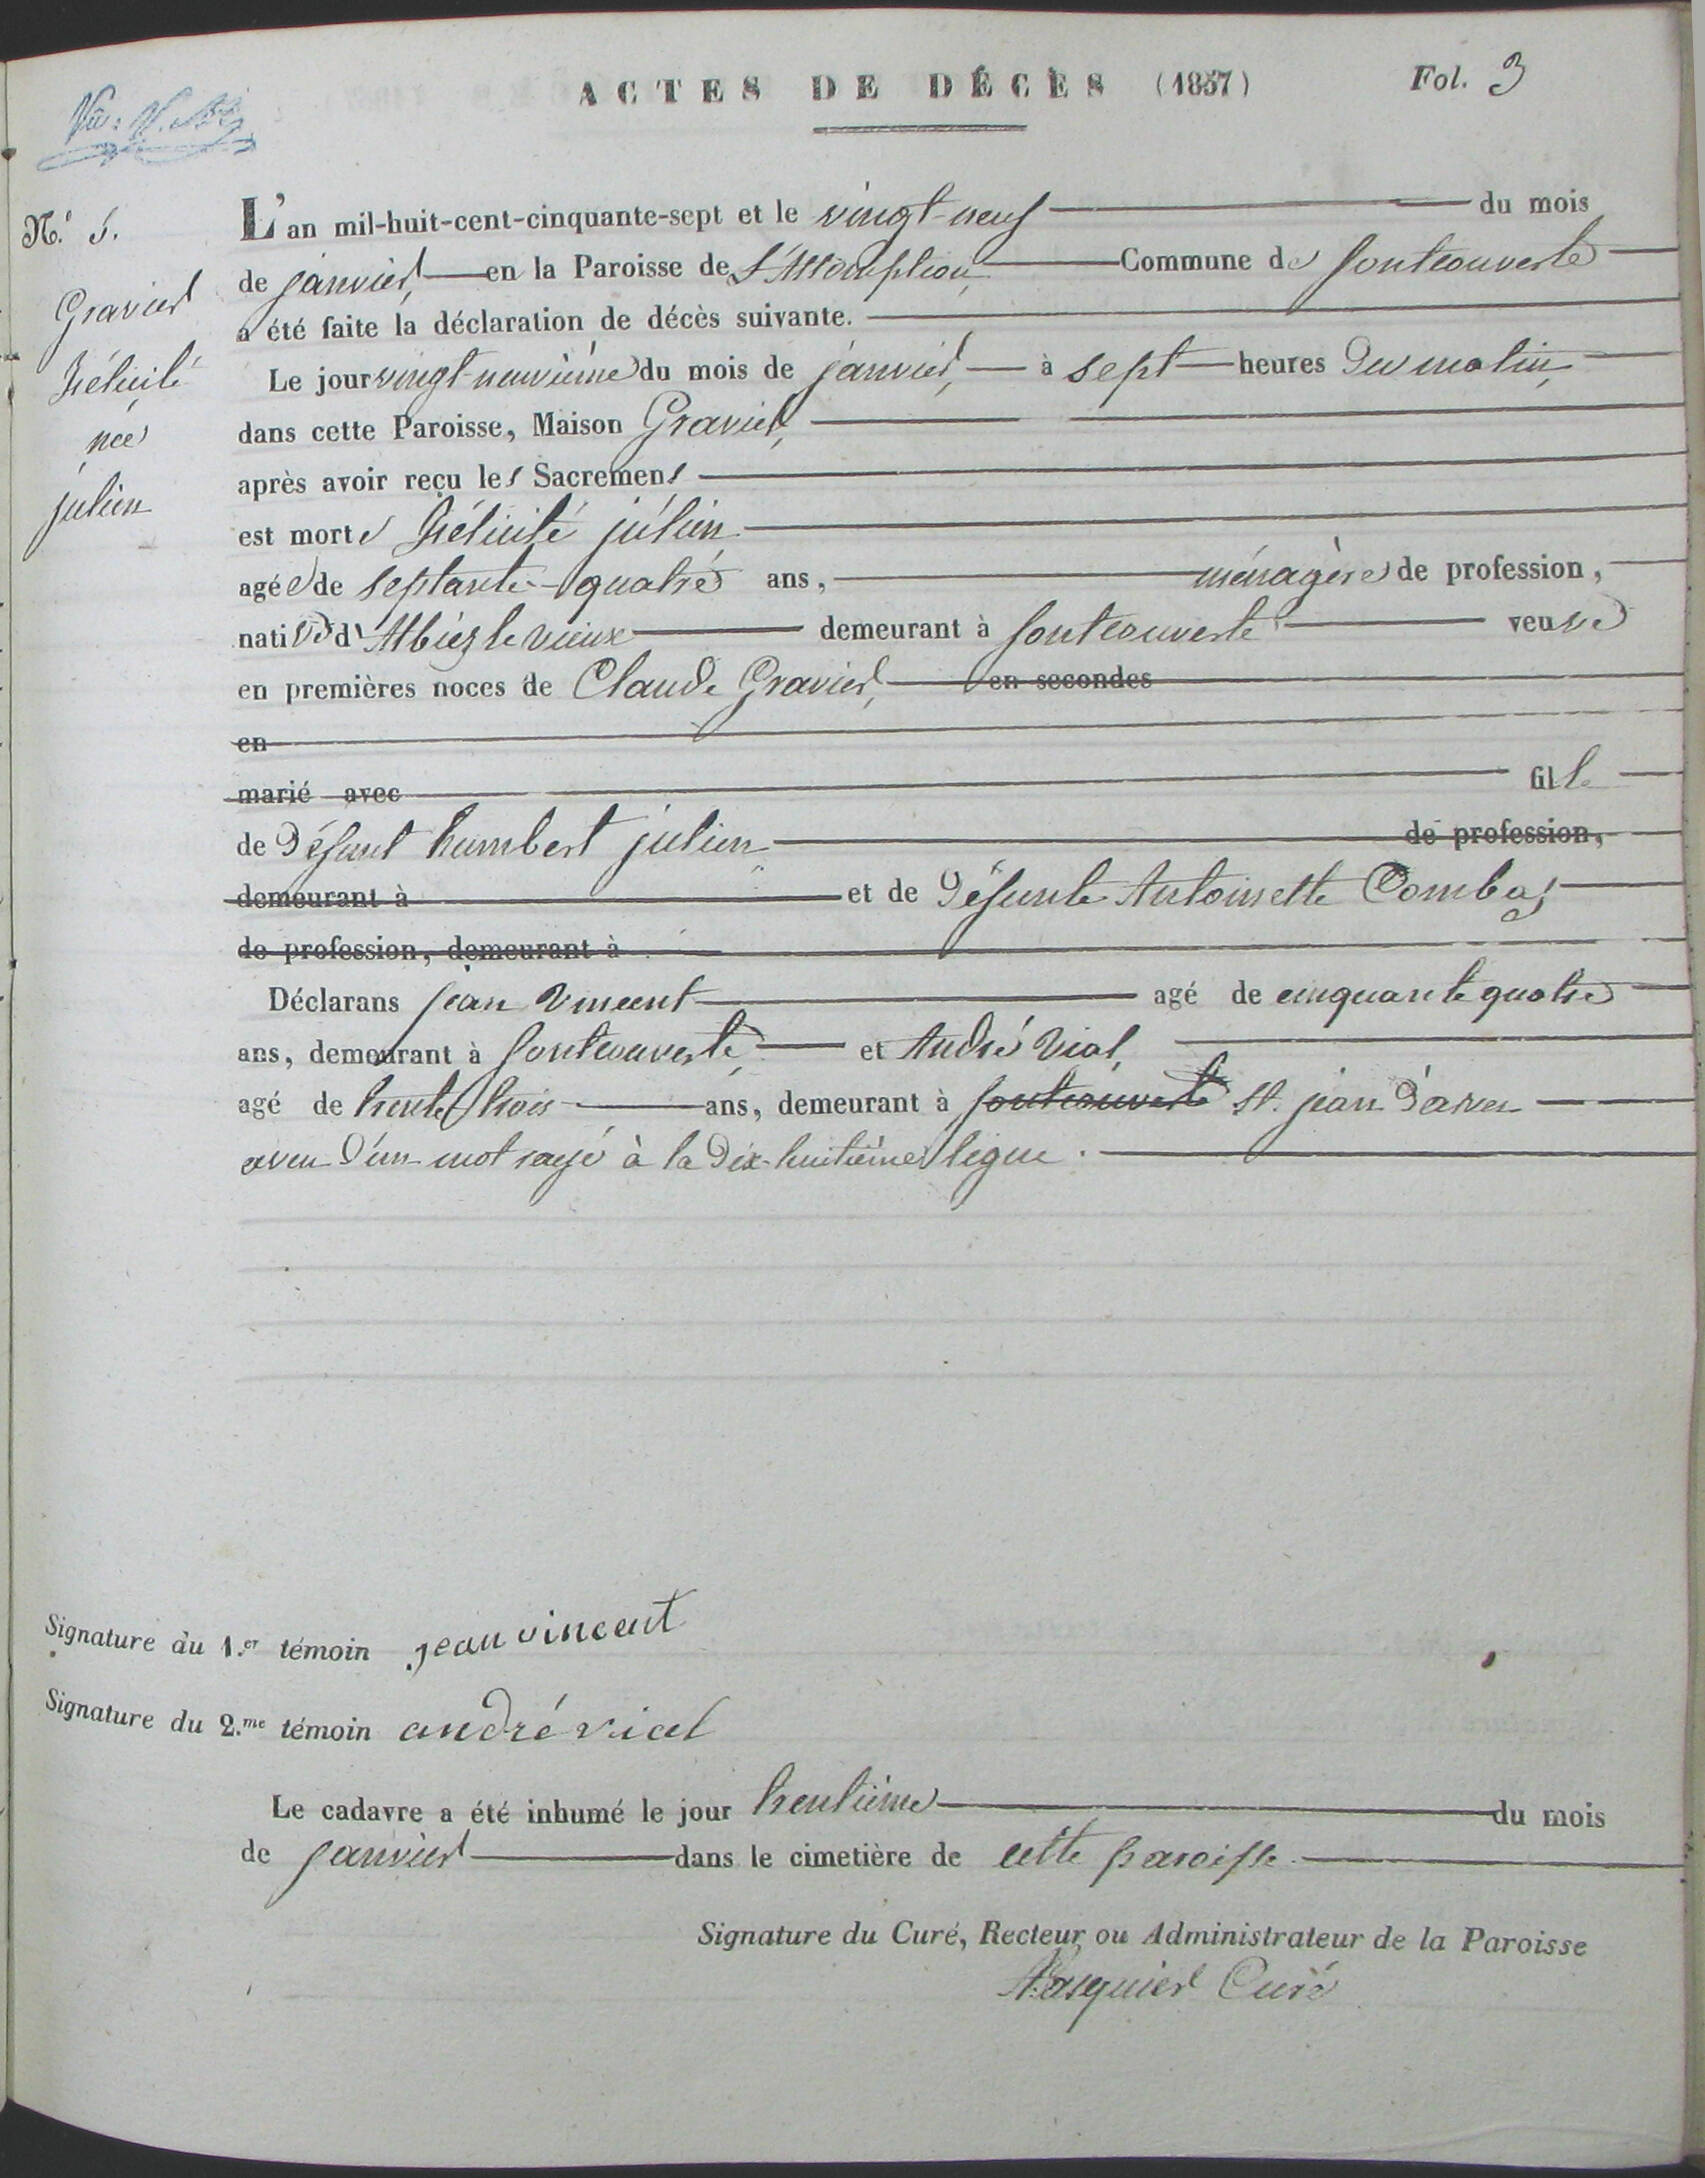 ACTES DE DÉCÈS (1857) Fol. 3
Vu:
N.º 5.
Gravier
Félicité
née
julien
L'an mil-huit-cent-cinquante-sept et le vingt-neuf du mois
de janvier, en la Paroisse de L'Assomption, Commune de fontcouverte
a été faite la déclaration de décès suivante.
Le jour vingt-neuvième du mois de janvier, à sept heures du matin,
dans cette Paroisse, Maison Gravier,
après avoir reçu les Sacremens
est morte Félicité julien
agée de septante-quatre ans, ménagère de profession,
native d'Albiez le vieux demeurant à fontcouverte veuve
en premières noces de Claude Gravier, en secondes
en
marié avec fille
de défunt humbert julien de profession,
demeurant à et de défunte Antoinette Combaz
de profession, demeurant à
Déclarans jean Vincent agé de cinquante quatre
ans, demeurant à fontcouverte, et André Vial,
agé de trente trois ans, demeurant à fontcouverte St. jean d'arves
aveu d'un mot rayé à la dix-huitième ligne.
Signature du 1.er témoin jean vincent
Signature du 2.me témoin andré vial
Le cadavre a été inhumé le jour trentième du mois
de janvier dans le cimetière de cette paroisse
Signature du Curé, Recteur ou Administrateur de la Paroisse
Pasquier Curé